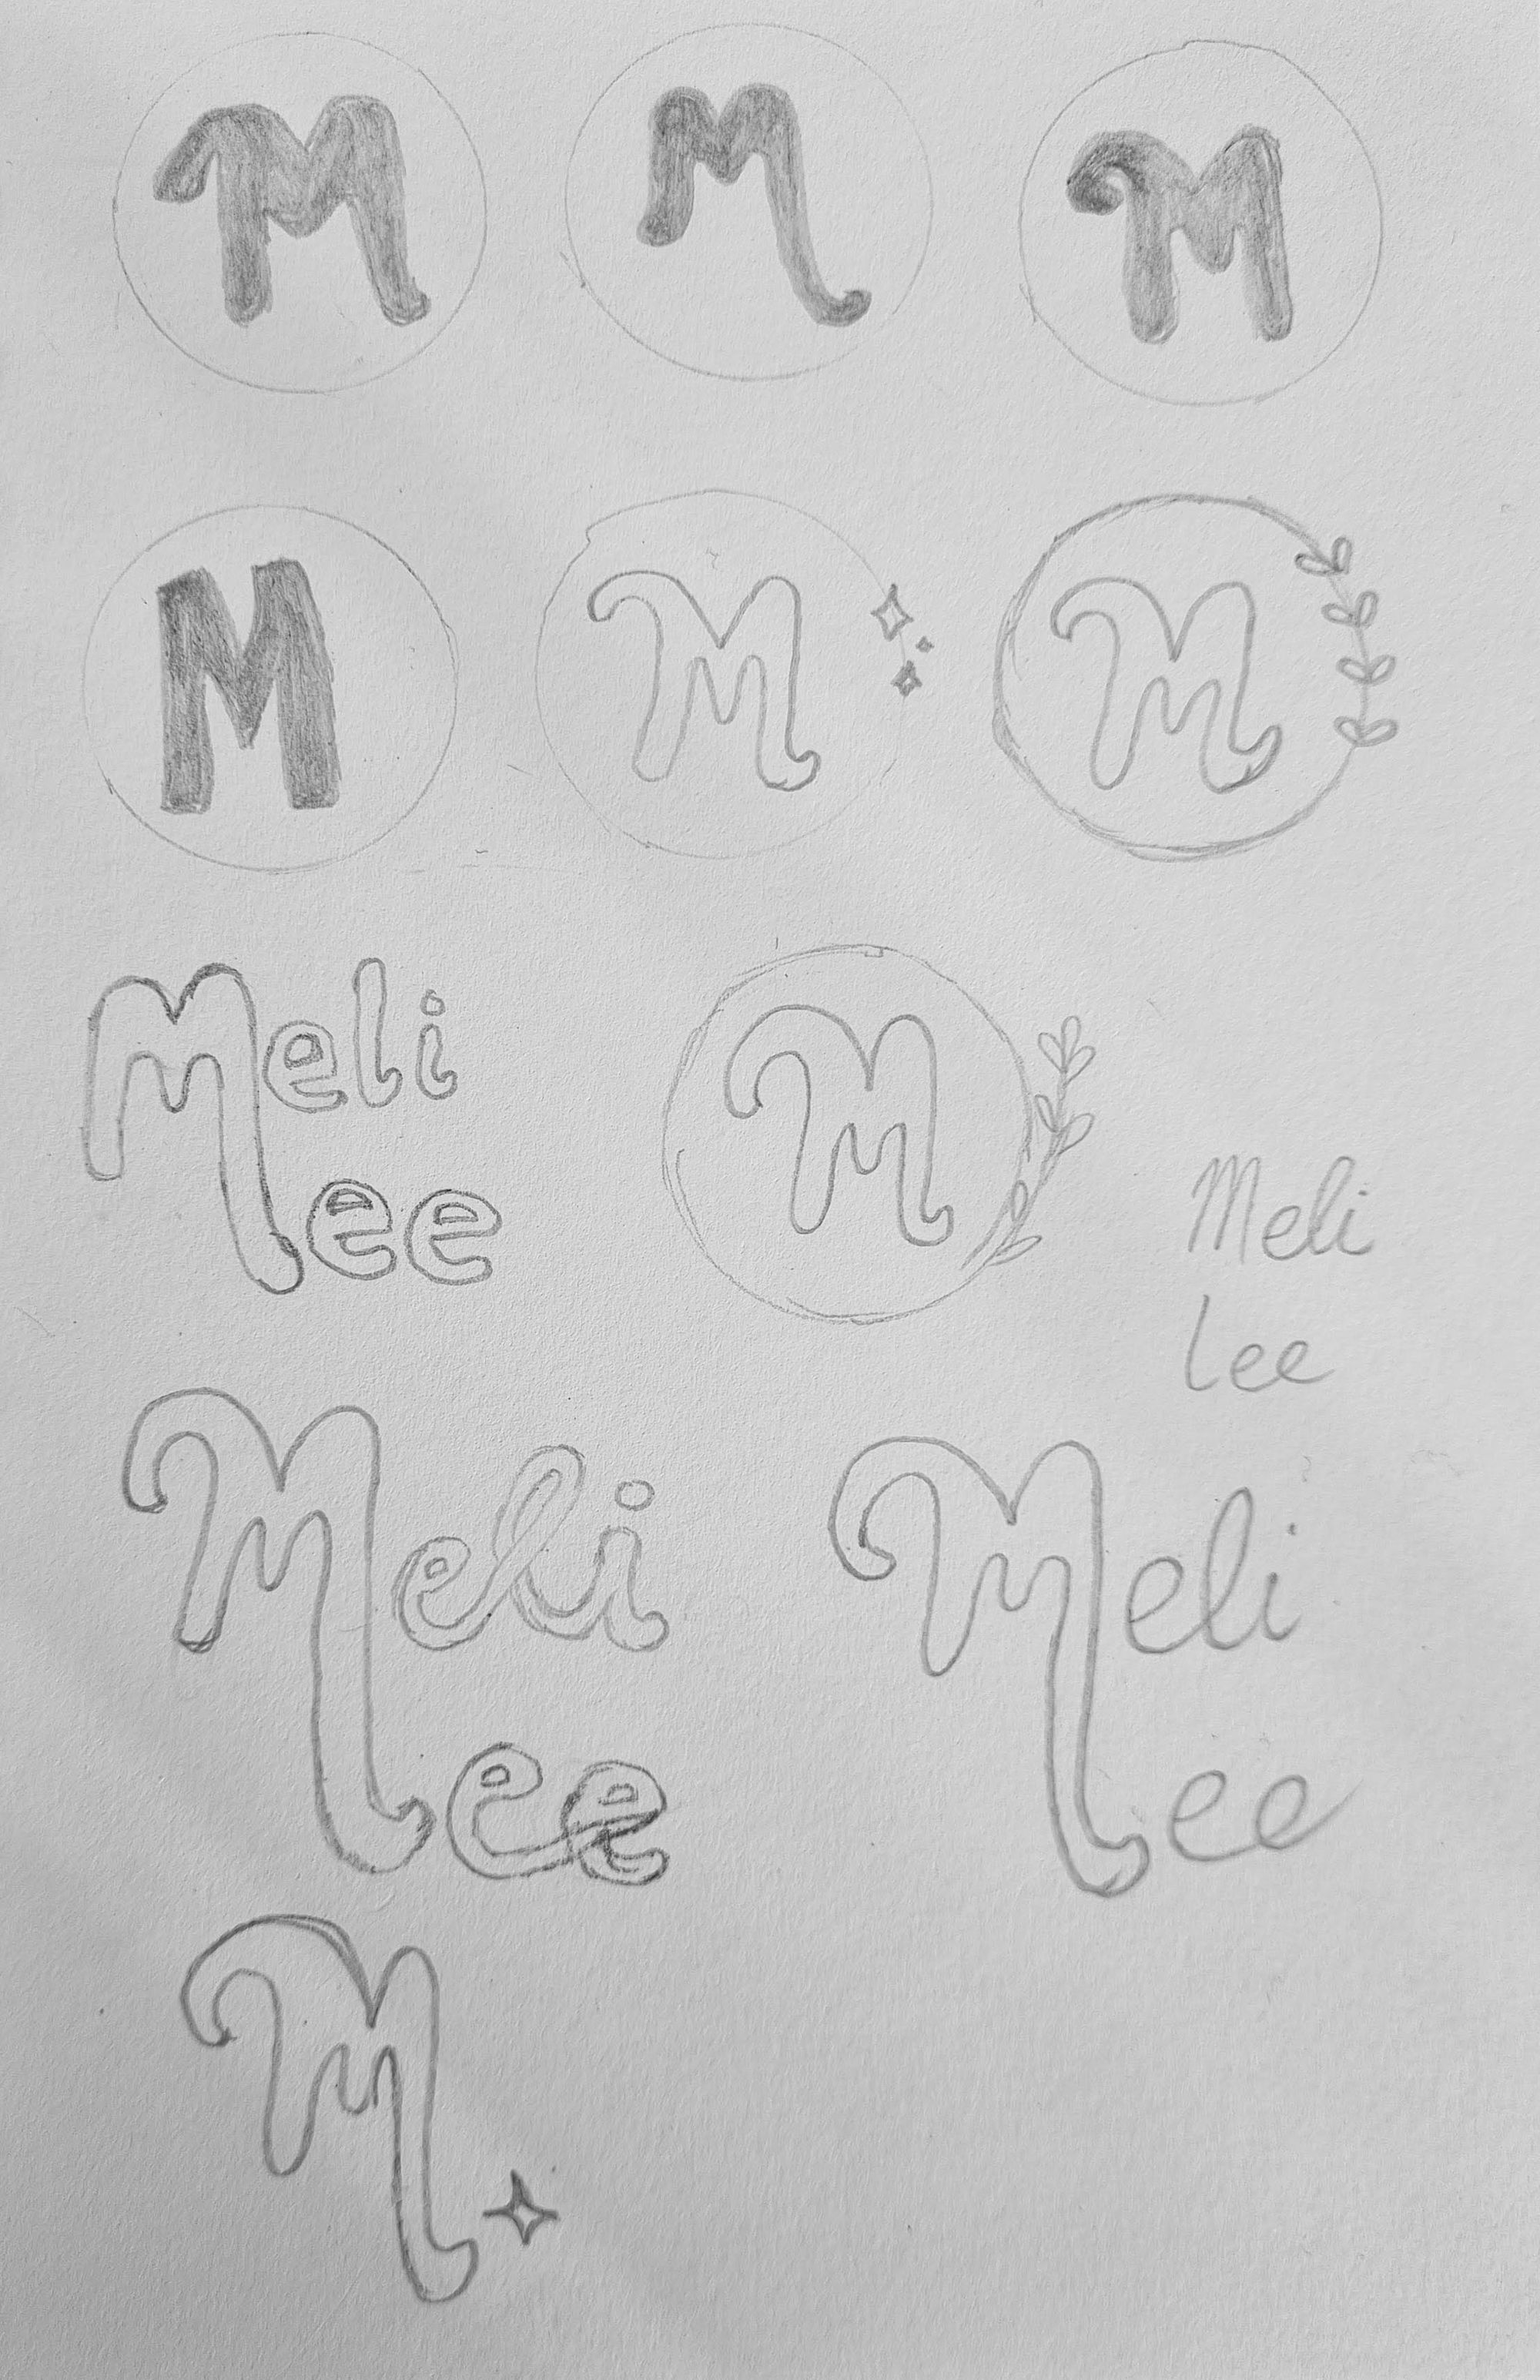 M M M
M M M
Meli
Lee
M
Meli
Lee
Meli
Lee
Meli
Lee
M